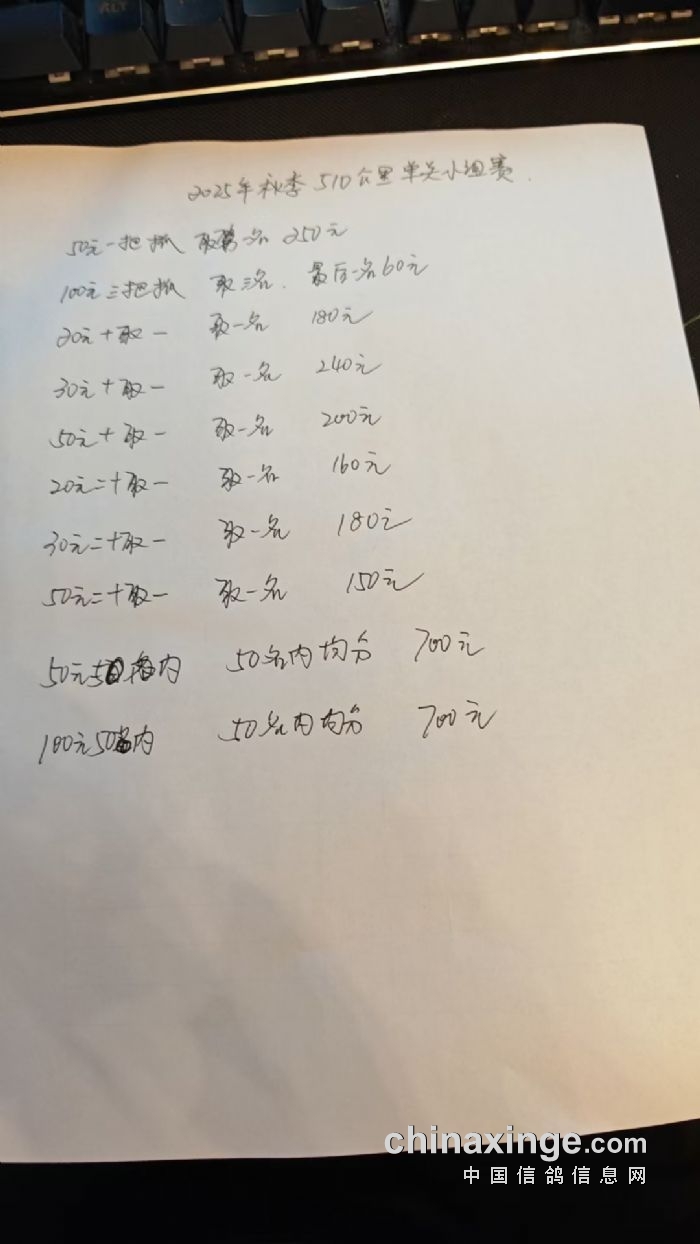 ALT
2025年秋季 510公里单关小组赛.
50元一把抓 取一名 250元
100元三把抓 取三名. 最后一名60元
20元十取一 取一名 180元
30元十取一 取一名 240元
50元十取一 取一名 200元
20元二十取一 取一名 160元
30元二十取一 取一名 180元
50元二十取一 取一名 150元
50元50名内 50名内均分 700元
100元50名内 50名内均分 700元
chinaxinge.com
中国信鸽信息网